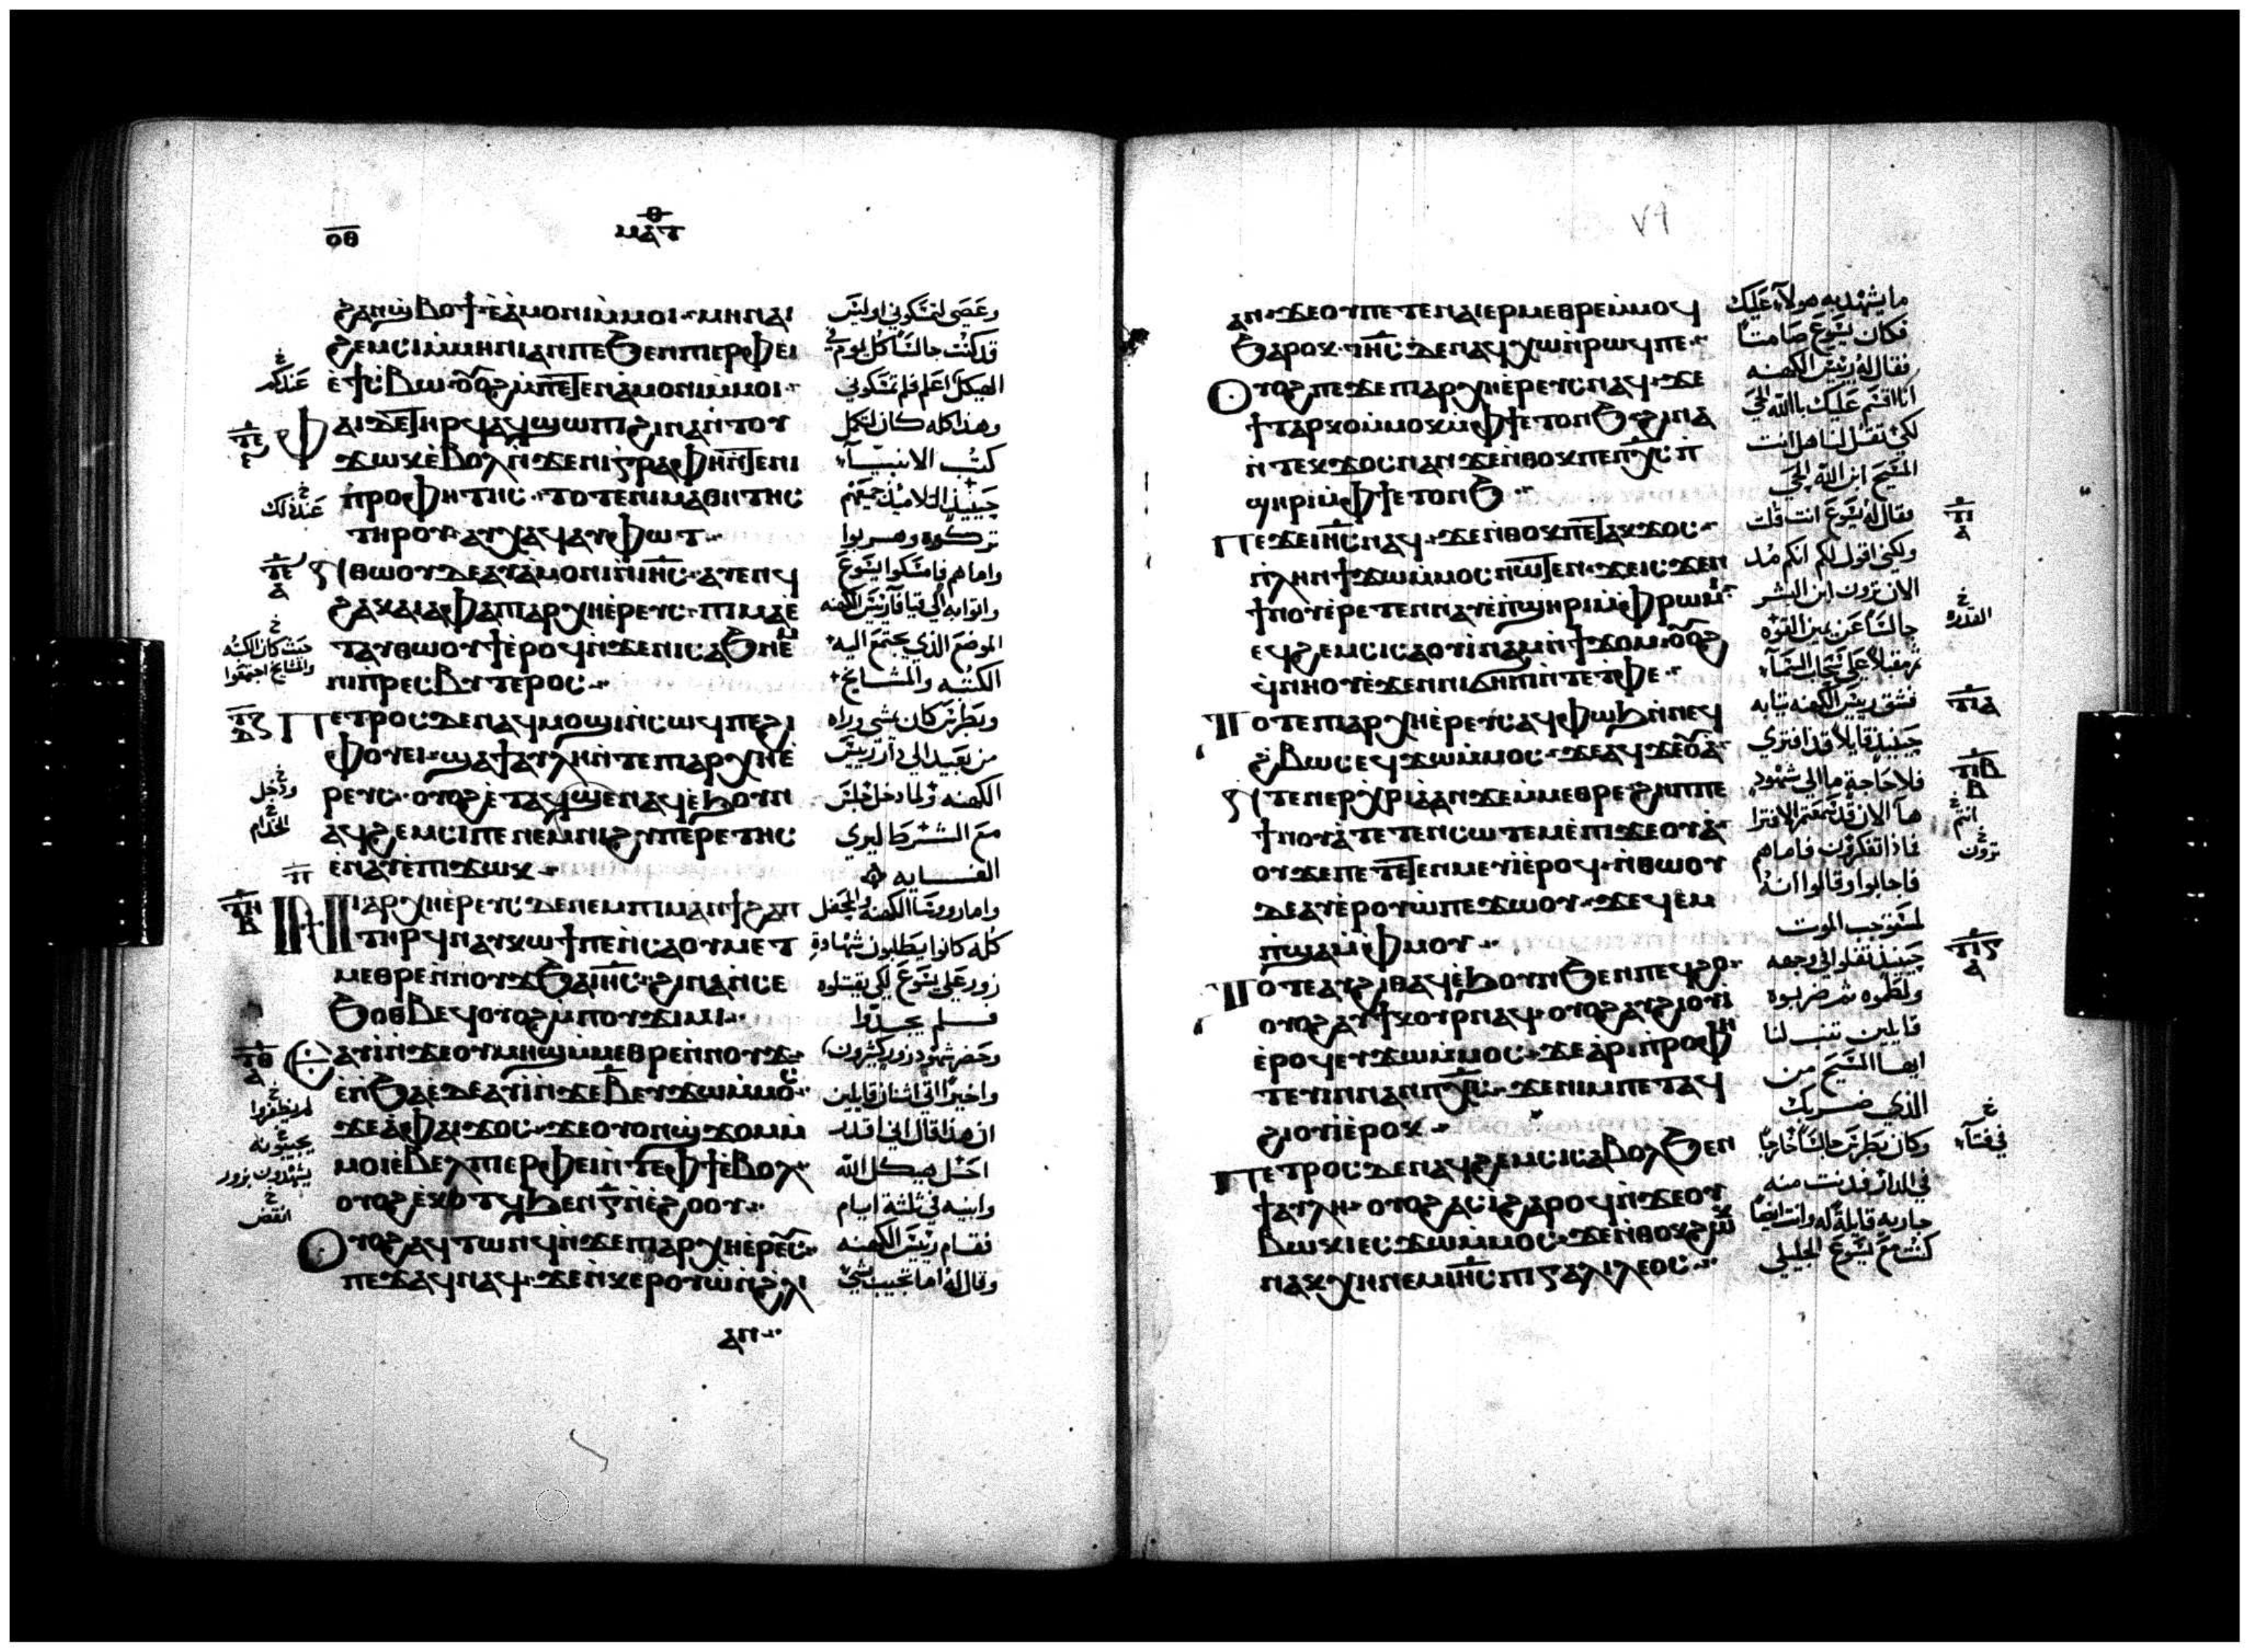 ⲟⲑ
ⲙⲁⲧ
ϩⲁⲛϣⲃⲟϯ ⲉ̀ⲁ̀ⲙⲟⲛⲓⲙ̀ⲙⲟⲓ ⲙⲏⲛⲁⲓ
ϩⲉⲙⲥⲓⲙ̀ⲙⲏⲛⲓⲁⲛⲡⲉϧⲉⲛⲡⲓⲉⲣⲫⲉⲓ
ⲁⲓⲇⲉⲧⲏⲣϥⲁϥϣⲱⲡⲓϩⲓⲛⲁⲛ̀ⲧⲟⲩ
ϫⲱⲕⲉ̀ⲃⲟⲗⲛ̀ϫⲉⲛⲓⲅⲣⲁⲫⲏⲛ̀ⲧⲉⲛⲓ
ⲡⲣⲟⲫⲏⲧⲏⲥ ⲧⲟⲧⲉⲛⲓⲙⲁⲑⲏⲧⲏⲥ
ⲧⲏⲣⲟⲩ ⲁⲩⲭⲁϥⲁⲩⲫⲱⲧ
ϩⲁⲕⲁⲓⲁⲫⲁⲡⲓⲁⲣⲭⲏⲉ̀ⲣⲉⲩⲥ ⲡⲓⲙⲁⲉ̀
ⲧⲁⲩⲑⲱⲟⲩϯⲉ̀ⲣⲟϥⲛ̀ϫⲉⲛⲓⲥⲁϧⲛⲉⲙ
ⲛⲓⲡⲣⲉⲥⲃⲩⲧⲉⲣⲟⲥ
ⲡⲉⲧⲣⲟⲥⲇⲉⲛⲁϥⲙⲟϣⲓⲛ̀ⲥⲱϥⲡⲉϩⲓ
ⲫⲟⲩⲉⲓ ϣⲁϯⲁⲩⲗⲏⲛ̀ⲧⲉⲡⲓⲁⲣⲭⲏⲉ̀
ⲣⲉⲩⲥ ⲟⲩⲟϩⲉ̀ⲧⲁϥϣⲉⲛⲁϥⲉ̀ϧⲟⲩⲛ
ⲁϥϩⲉⲙⲥⲓⲡⲉⲛⲉⲙⲛⲓϩⲩⲡⲉⲣⲉⲧⲏⲥ
ⲉ̀ⲛⲁⲩⲉ̀ⲡⲓϫⲱⲕ
ⲛⲓⲁⲣⲭⲏⲉ̀ⲣⲉⲩⲥⲇⲉⲛⲉⲙⲡⲓⲙⲁⲛ̀ϯϩⲁⲡ
ⲧⲏⲣϥⲛⲁⲩⲕⲱϯⲡⲉⲛ̀ⲥⲁⲟⲩⲙⲉⲧ
ⲙⲉⲑⲣⲉⲛ̀ⲛⲟⲩϫϧⲁⲓⲏ̅ⲥ̅ ϩⲓⲛⲁⲛ̀ⲥⲉ
ϧⲟⲑⲃⲉϥⲟⲩⲟϩⲙ̀ⲡⲟⲩϫⲓⲙⲓ
ⲁⲩⲓ̀ⲛ̀ϫⲉⲟⲩⲙⲏϣⲙ̀ⲙⲉⲑⲣⲉⲛ̀ⲛⲟⲩϫ
ⲉ̀ⲡϧⲁⲉ̀ⲇⲉⲁⲩⲓ̀ⲛ̀ϫⲉⲃ̅ⲉⲩϫⲱⲙ̀ⲙⲟⲥ
ϫⲉⲁ̀ⲫⲁⲓϫⲟⲥ ϫⲉⲟⲩⲟⲛϣϫⲟⲙⲙ̀
ⲙⲟⲓⲉ̀ⲃⲉⲗⲡⲓⲉⲣⲫⲉⲓⲛ̀ⲧⲉⲫϯⲉ̀ⲃⲟⲗ
ⲟⲩⲟϩⲉ̀ⲕⲟⲧϥϧⲉⲛⲅ̅ⲛ̀ⲉ̀ϩⲟⲟⲩ
ⲟⲩⲟϩⲁϥⲧⲱⲛϥⲛ̀ϫⲉⲡⲓⲁⲣⲭⲏⲉ̀ⲣⲉⲩⲥ
ⲡⲉϫⲁϥⲛⲁϥ ϫⲉⲛ̀ⲕⲉⲣⲟⲩⲱⲛ̀ϩⲗⲓ
ⲁⲛ
قد كنت جالسًا كل يوم في
الهيكل اعلم فلم تمسكوني
وهذا كله كان لتكمل
كتب الانبيآء
حينيذ التلاميذ جميعهم
تركوه وهربوا
واما هم فامسكوا يسوع
الموضع الذي يجتمع اليه
الكتبه والمشايخ
وبطرس كان يمشي وراه
من بعيد الي دار رييس
الكهنه ولما دخل جلس
مع الشرط ليري
كله كانوا يطلبون شهادة
زور علي يسوع لكي يقتلوه
فلم يجدوا
واخيرًا اتي اثنان قايلين
ان هذا قال اني اقدر
احل هيكل الله
وابنيه في ثلثة ايام
فقام رييس الكهنه
وقال له اما تجيب بشي
٧٩
ⲁⲛ ϫⲉⲟⲩⲡⲉⲧⲉⲛⲁⲓⲉⲣⲙⲉⲑⲣⲉⲙ̀ⲙⲟϥ
ϧⲁⲣⲟⲕ ⲓⲏ̅ⲥ̅ ⲇⲉⲛⲁϥⲭⲱⲛ̀ⲣⲱϥⲡⲉ
ⲟⲩⲟϩⲡⲉϫⲉⲡⲓⲁⲣⲭⲏⲉ̀ⲣⲉⲩⲥⲛⲁϥ ϫⲉ
ϯⲧⲁⲣⲕⲟⲙ̀ⲙⲟⲕⲙ̀ⲫϯⲉⲧⲟⲛϧ ϩⲓⲛⲁ
ⲛ̀ⲧⲉⲕϫⲟⲥⲛⲁⲛ ϫⲉⲛ̀ⲑⲟⲕⲡⲉⲡⲭ̅ⲥ̅ ⲡ
ϣⲏⲣⲓⲙ̀ⲫϯⲉⲧⲟⲛϧ
ⲡⲉϫⲉⲓⲏ̅ⲥ̅ⲛⲁϥ ϫⲉⲛ̀ⲑⲟⲕⲡⲉⲧⲁⲕϫⲟⲥ
ⲡⲗⲏⲛϯϫⲱⲙ̀ⲙⲟⲥⲛⲱⲧⲉⲛ ϫⲉⲓⲥϫⲉⲛ
ϯⲛⲟⲩⲉ̀ⲣⲉⲧⲉⲛⲛⲁⲩⲉ̀ⲡϣⲏⲣⲓⲙ̀ⲫⲣⲱⲙⲓ
ⲉϥϩⲉⲙⲥⲓⲥⲁⲟⲩⲓ̀ⲛⲁⲙⲛ̀ϯϫⲟⲙ ⲟⲩⲟϩ
ⲉϥⲛⲏⲟⲩⲉ̀ϫⲉⲛⲛⲓϭⲏⲡⲓⲛ̀ⲧⲉⲧ̀ⲫⲉ
ⲧⲟⲧⲉⲡⲓⲁⲣⲭⲏⲉ̀ⲣⲉⲩⲥⲁϥⲫⲱϧⲛ̀ⲛⲉϥ
ϩⲃⲱⲥⲉϥϫⲱⲙ̀ⲙⲟⲥ ϫⲉⲁϥϫⲉⲟⲩⲁ̀
ϯⲛⲟⲩⲁ̀ⲧⲉⲧⲉⲛⲥⲱⲧⲉⲙⲉ̀ⲡⲓϫⲉⲟⲩⲁ̀
ⲟⲩϫⲉⲡⲉⲧⲉⲧⲉⲛⲙⲉⲩⲓ̀ⲉ̀ⲣⲟϥ ⲛ̀ⲑⲱⲟⲩ
ⲇⲉⲁⲩⲉ̀ⲣⲟⲩⲱ̀ⲡⲉϫⲱⲟⲩ ϫⲉϥⲉⲙ
ⲡ̀ϣⲁⲙ̀ⲫⲙⲟⲩ
ⲧⲟⲧⲉⲁⲩϩⲓⲑⲁϥⲉ̀ϧⲟⲩⲛϧⲉⲛⲡⲉϥϩⲟ
ⲟⲩⲟϩⲁⲩϯⲕⲟⲩⲣⲛⲁϥ ⲟⲩⲟϩⲁⲩϩⲓⲟⲩⲓ
ⲉ̀ⲣⲟϥⲉⲩϫⲱⲙ̀ⲙⲟⲥ ϫⲉⲁ̀ⲣⲓⲡⲣⲟⲫⲏ
ⲧⲉⲩⲓⲛⲛⲁⲛⲡⲭ̅ⲥ̅ ϫⲉⲛⲓⲙⲡⲉⲧⲁϥ
ϩⲓⲟⲩⲓ̀ⲉ̀ⲣⲟⲕ
ⲡⲉⲧⲣⲟⲥⲇⲉⲛⲁϥϩⲉⲙⲥⲓⲥⲁⲃⲟⲗϧⲉⲛ
ϯⲁⲩⲗⲏ ⲟⲩⲟϩⲁⲥⲓ̀ϩⲁⲣⲟϥⲛ̀ϫⲉⲟⲩ
ⲃⲱⲕⲓⲉⲥϫⲱⲙ̀ⲙⲟⲥ ϫⲉⲛ̀ⲑⲟⲕϩⲱⲕ
ⲛⲁⲕⲭⲏⲛⲉⲙⲓⲏ̅ⲥ̅ⲡⲓⲅⲁⲗⲓⲗⲉⲟⲥ
ما يشهد به هولآء عليك
فكان يسوع صامتًا
فقال له رييس الكهنه
انا اقسم عليك بالله الحي
لكي تقول لنا هل انت
المسيح ابن الله الحي
فقال له يسوع انت قلت
ولكني اقول لكم انكم مند
الان ترون ابن البشر
جالسًا عن يمين القوه
مقبلًا علي سحاب السمآء
فشق رييس الكهنه ثيابه
حينيذ قايلًا قد افتري
فلا حاجة ما الي شهود
فماذا تفكرون فاما هم
فاجابوا وقالوا انه
لمستوجب الموت
حينيذ تفلوا في وجهه
ولطموه ثم ضربوه
قايلين تنبى لنا
ايها المسيح من
الذي ضربك
وكان بطرس جالسًا خارجًا
في الدار فدنت منه
جاريه قايلة له وانت ايضًا
كنت مع يسوع الجليلي